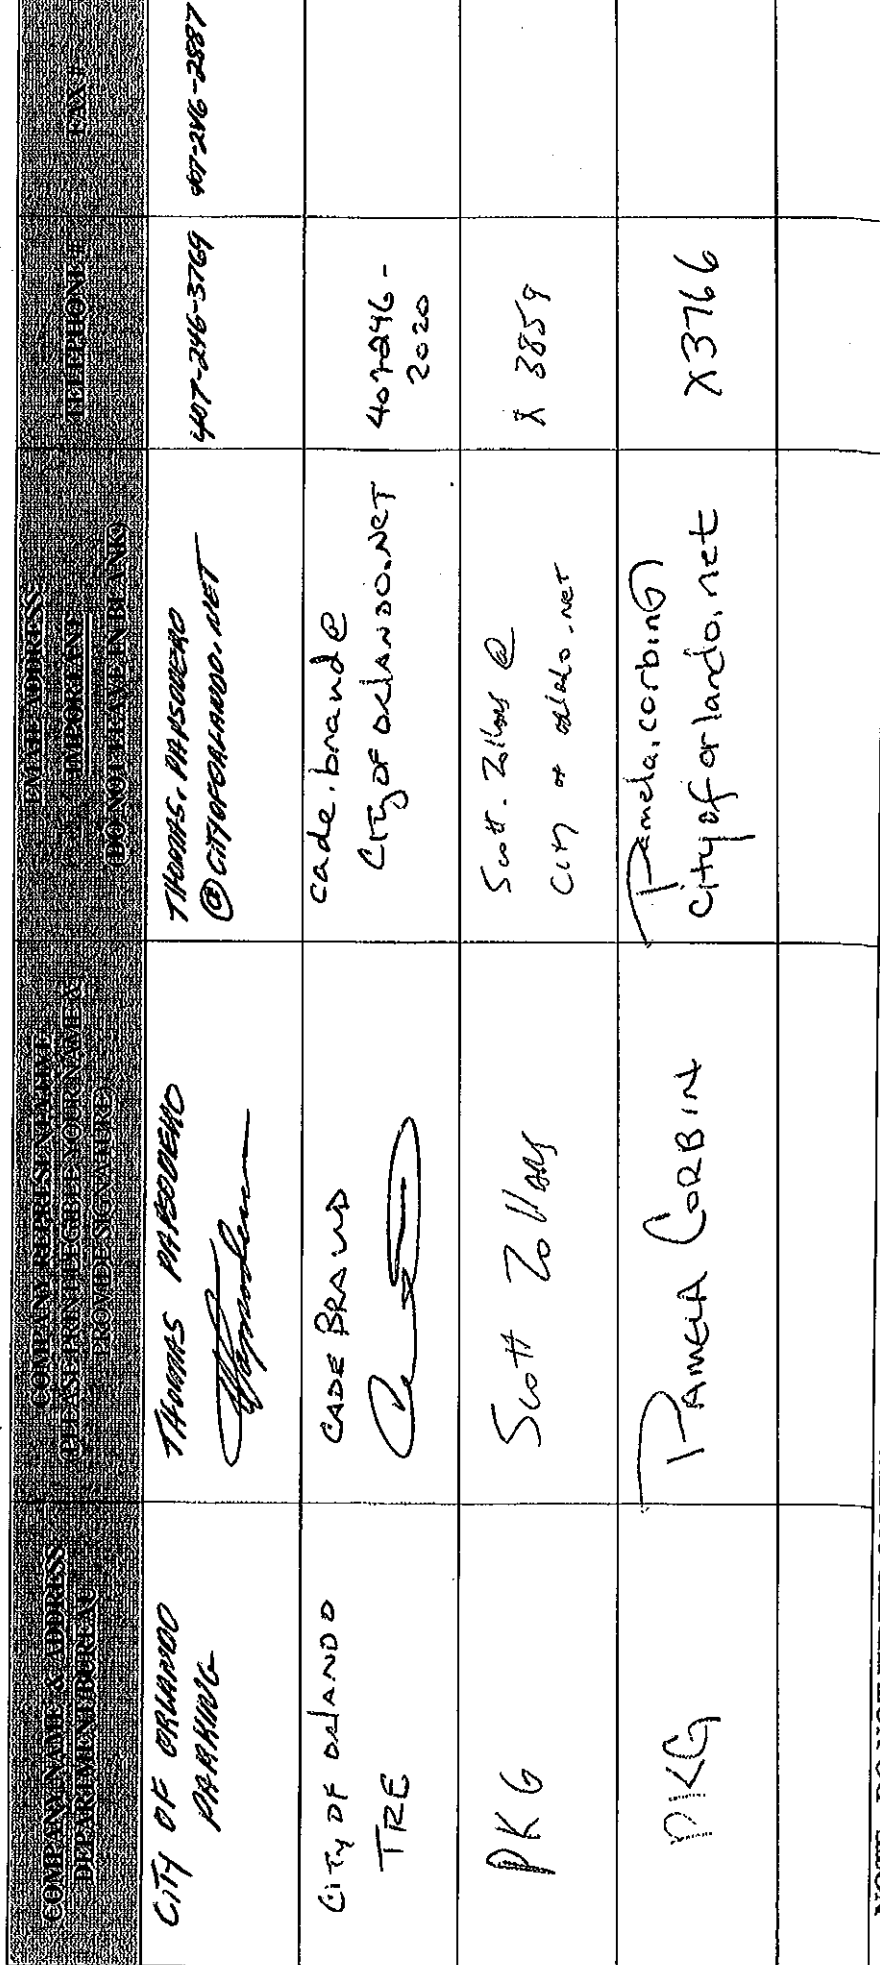 COMPANY NAME & ADDRESS
DEPARTMENT/BUREAU
COMPANY REPRESENTATIVE
(PLEASE PRINT LEGIBLE YOUR NAME &
PROVIDE SIGNATURE)
EMAIL ADDRESS
IMPORTANT
(DO NOT LEAVE IN BLANK)
TELEPHONE #
FAX #
CITY OF ORLANDO
PARKING
THOMAS
THOMAS.
@CITYOFORLANDO.NET
407-246-3769
407-246-2887
CITY OF ORLANDO
TRE
CADE BRAUD
cade.braud@
CITY OF ORLANDO.NET
407-246-
2020
PKG
Scott Zollars
Scott.Zollars@
CITY OF orlando.net
X 3859
PKG
PAMELA CORBIN
Pamela.corbin@
cityoforlando.net
X3766